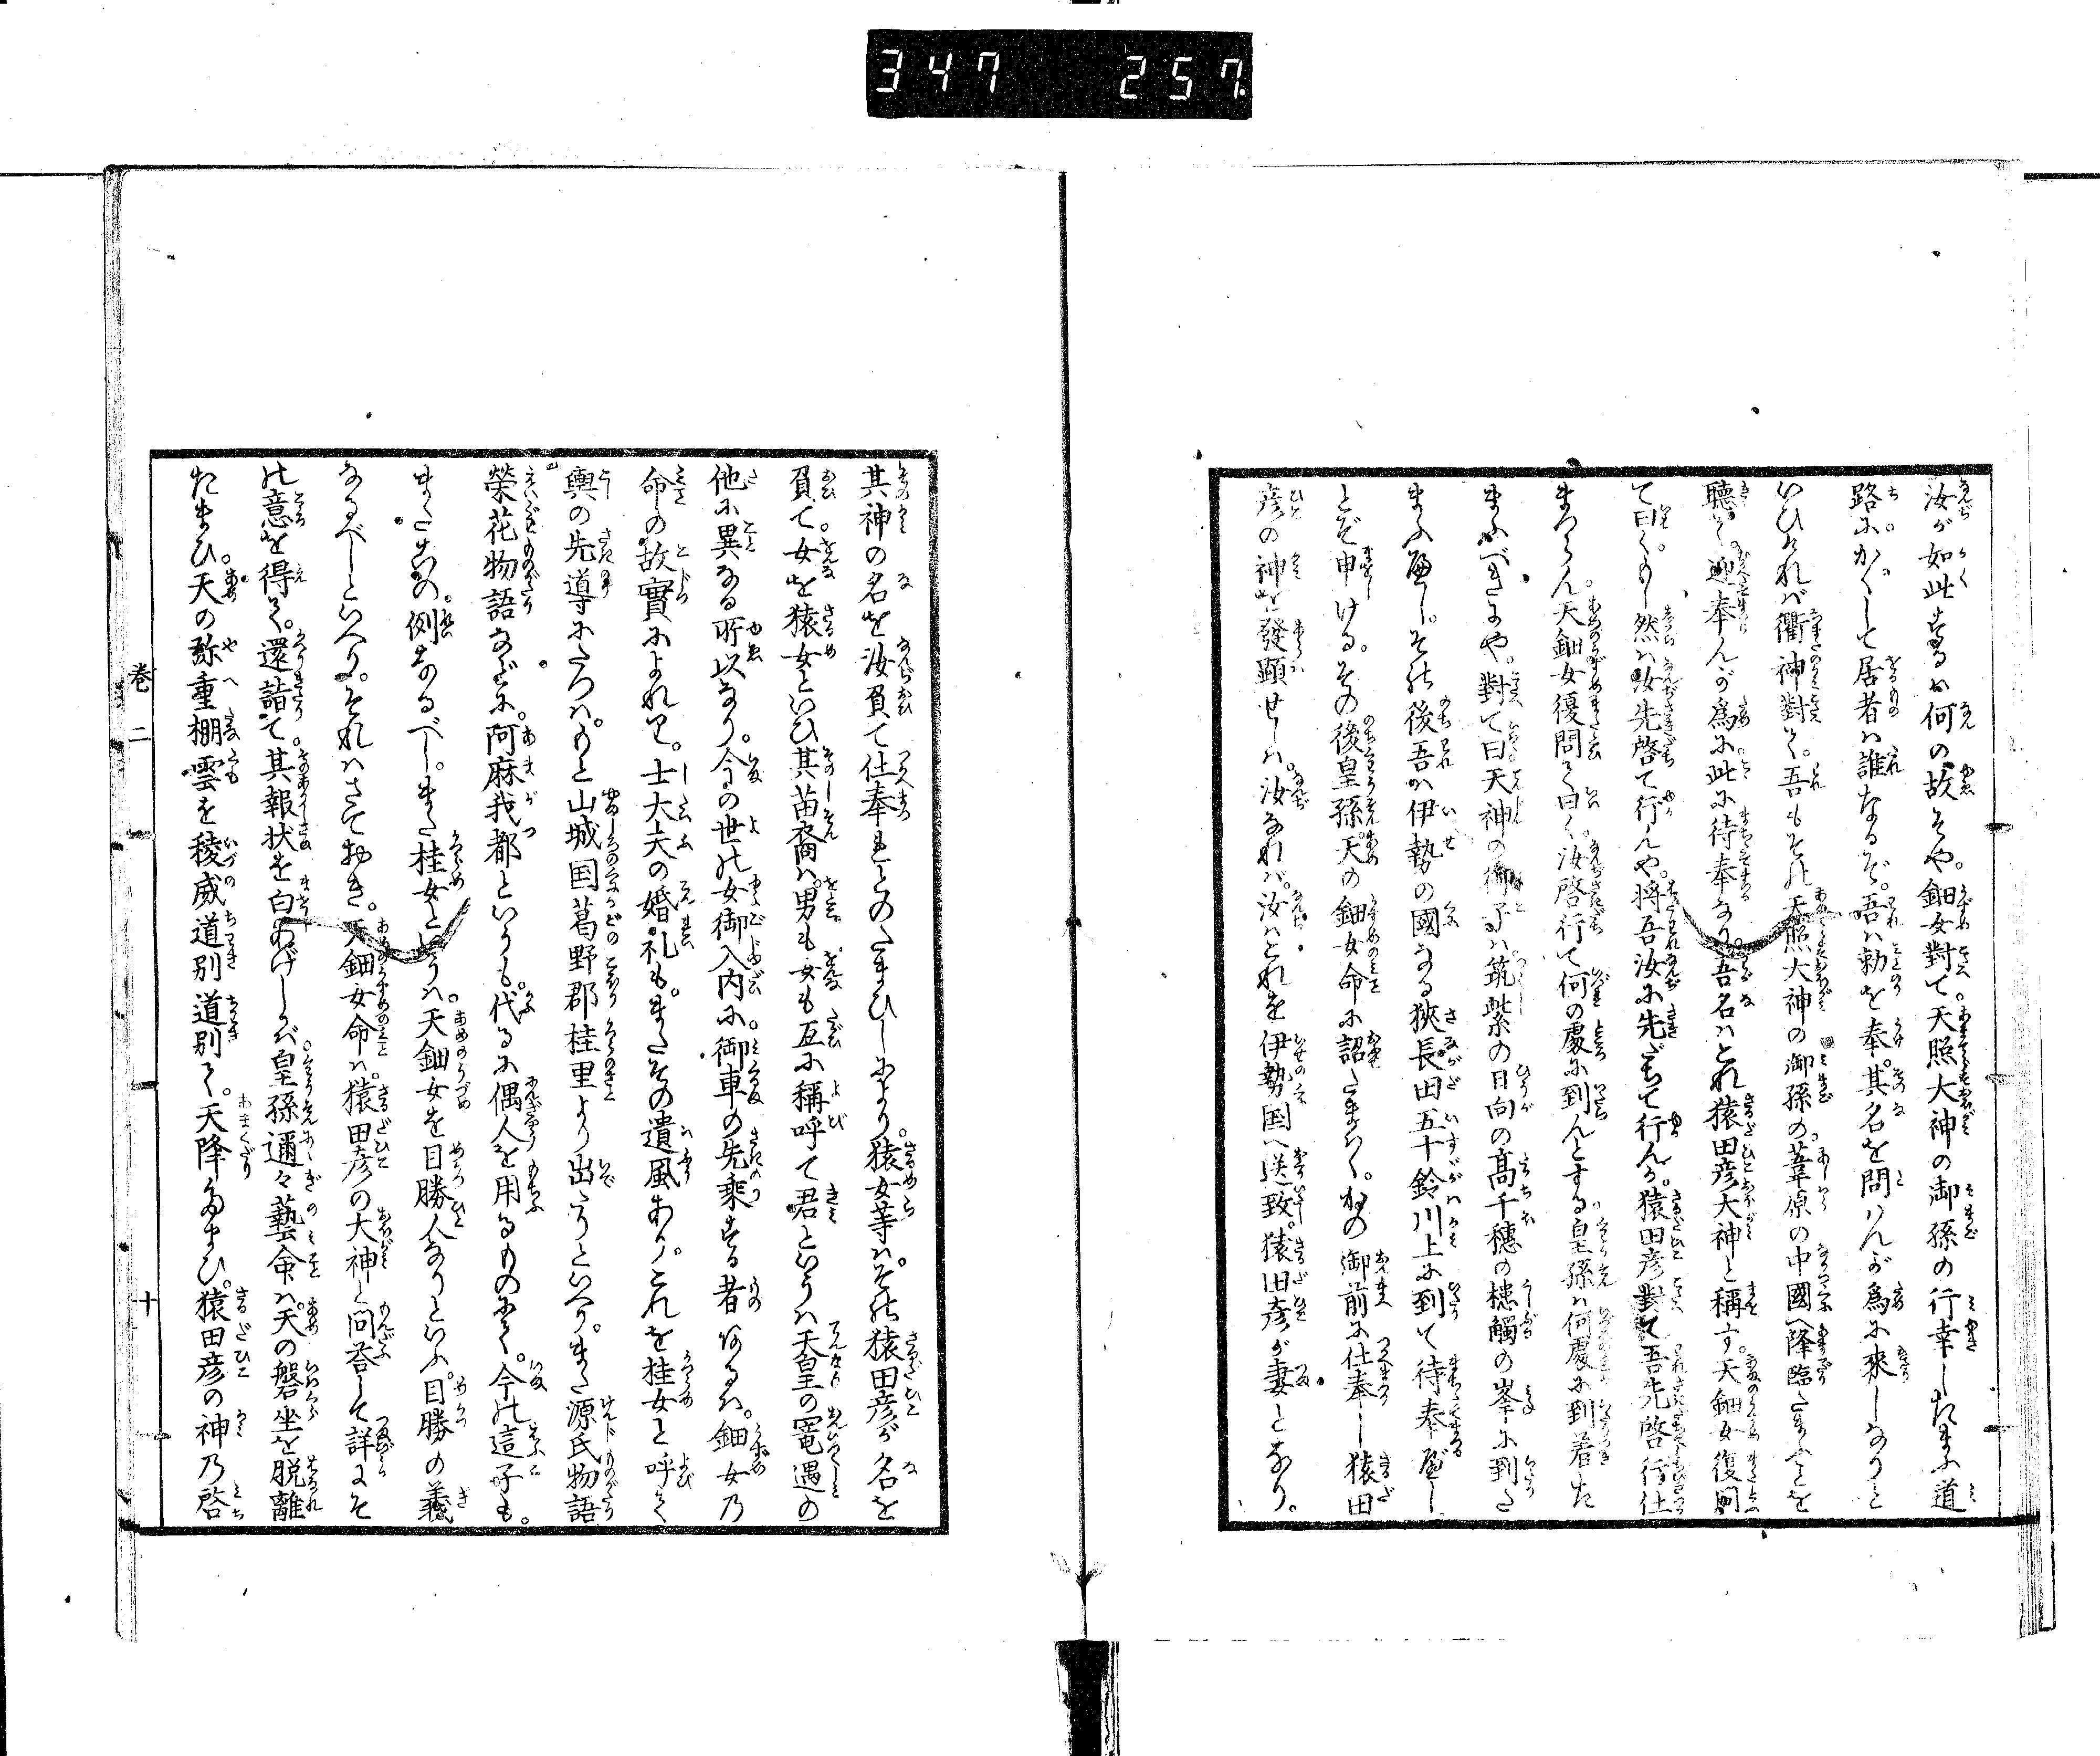 347 257.
汝が如此するハ何の故ぞや。鈿女對て。天照大神の御孫の行幸したまふ道
路にかくして居者ハ誰なるぞ。吾ハ勅を奉。其名を問ハんが爲に來しなりと
いひけれバ衢神對て。吾もその天照大神の御孫の。葦原の中國へ降臨たまふことを
聽て。迎奉んが爲に此に待奉なり。吾名ハこれ猿田彦大神と稱す。天鈿女復問
て曰く。もし然ハ汝先啓て行んや。将吾汝に先だちて行んか。猿田彦對て吾先啓行仕
まつらん。天鈿女復問て曰く。汝啓行て何の處に到んとする。皇孫ハ何處に到着た
まふべきにや。對て曰天神の御子ハ筑紫の日向の高千穗の槵觸の峯に到た
まふ而し。その後吾ハ伊勢の國なる狹長田五十鈴川上に到て待奉べし
とぞ申ける。その後皇孫天の鈿女命に詔たまハく。かの御前に仕奉し猿田
彦の神を發顕せしハ。汝なれバ。汝ハこれを伊勢国へ送致。猿田彦が妻となり。
其神の名を汝負て仕奉れとのたまひしにより。猿女等ハ。その猿田彦が名を
負て。女を猿女といひ其苗裔ハ。男も女も互に稱呼て君といふハ天皇の寵遇の
他に異なる所以なり。今の世の女御入内に。御車の先乘する者あるハ。鈿女乃
命の故實によれり。士大夫の婚礼も。またその遺風あり。これを桂女と呼て
輿の先導にたつハ。もと山城国葛野郡桂里より出たりといへり。また源氏物語
榮花物語などに。阿麻我都といふも。代るに偶人を用るものにて。今の這子も。
またこの。例なるべし。また桂女といふハ。天鈿女を目勝人なりといふ。目勝の義
なるべしといへり。それハさておき。天鈿女命ハ。猿田彦の大神と問荅して詳にそ
の意を得て。還詣て。其報状を白あげしかバ。皇孫邇々藝命ハ天の磐坐を脱離
たまひ。天の弥重棚雲を稜威道別道別て。天降たまひ。猿田彦の神乃啓
巻二
十